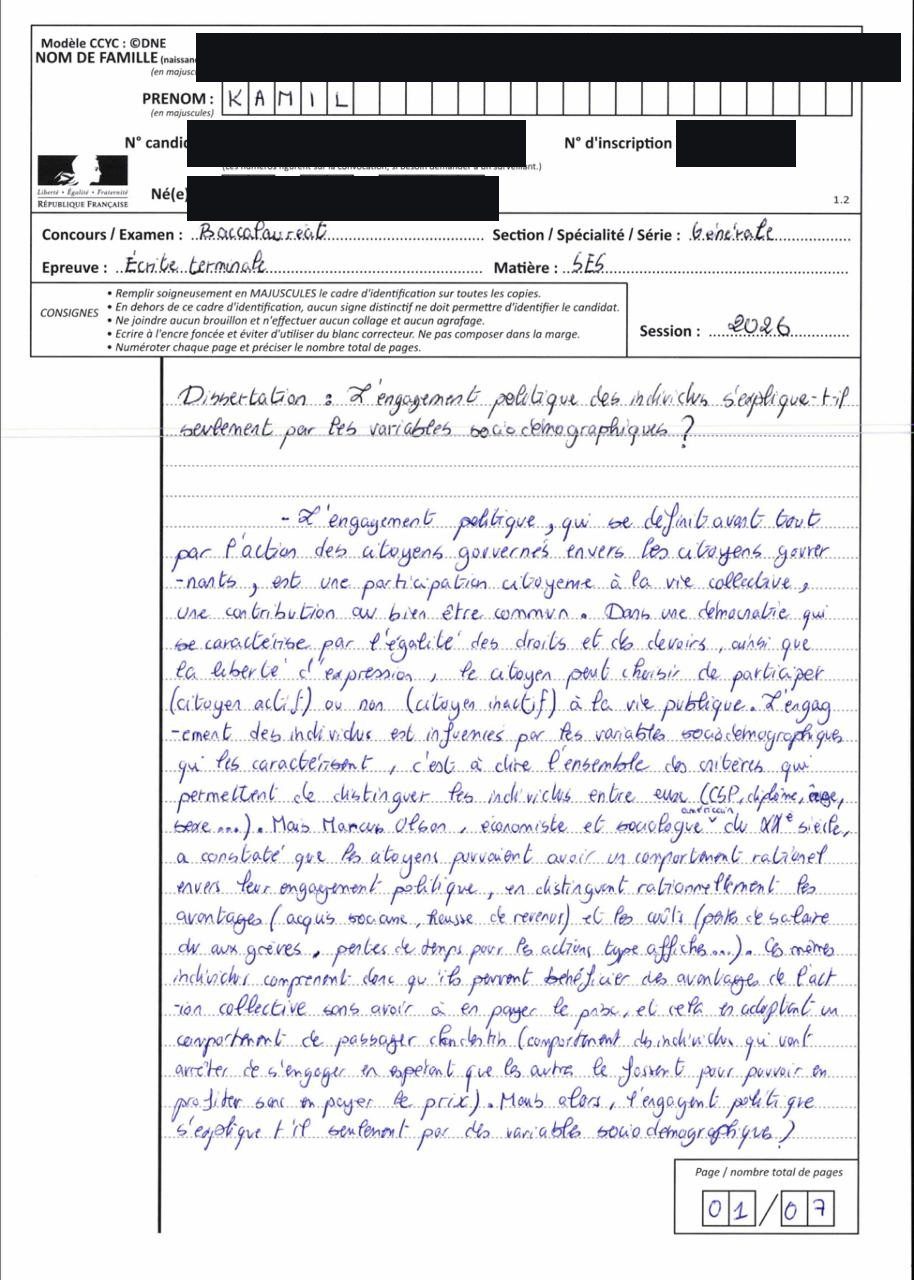 Modèle CCYC : ©DNE
NOM DE FAMILLE (naissan
(en majusc
PRENOM : K A M I L
(en majuscules)
N° candid N° d'inscription
(Les numéros figurent sur la convocation, si besoin demander à un surveillant.)
Liberté • Égalité • Fraternité
RÉPUBLIQUE FRANÇAISE
Né(e) 1.2
Concours / Examen : Baccalauréat Section / Spécialité / Série : Générale
Epreuve : Écrite terminale Matière : SES
CONSIGNES
• Remplir soigneusement en MAJUSCULES le cadre d'identification sur toutes les copies.
• En dehors de ce cadre d'identification, aucun signe distinctif ne doit permettre d'identifier le candidat.
• Ne joindre aucun brouillon et n'effectuer aucun collage et aucun agrafage.
• Ecrire à l'encre foncée et éviter d'utiliser du blanc correcteur. Ne pas composer dans la marge.
• Numéroter chaque page et préciser le nombre total de pages.
Session : 2026
Dissertation : L'engagement politique des individus s'explique-t-il
seulement par les variables sociodémographiques ?
- L'engagement politique, qui se définit avant tout
par l'action des citoyens gouvernés envers les citoyens gouver
-nants, est une participation citoyenne à la vie collective,
une contribution au bien être commun. Dans une démocratie qui
se caractérise par l'égalité des droits et des devoirs, ainsi que
la liberté d'expression, le citoyen peut choisir de participer
(citoyen actif) ou non (citoyen inactif) à la vie publique. L'engag
-ement des individus est influencés par les variables sociodémographiques
qui les caractérisent, c'est à dire l'ensemble des critères qui
permettent de distinguer les individus entre eux (CSP, diplôme, âge,
sexe...). Mais Marcus Olson, économiste et sociologue américain du XXe siècle,
a constaté que les citoyens pouvaient avoir un comportement rationel
envers leur engagement politique, en distinguant rationnellement les
avantages (acquis sociaux, hausse de revenus) et les coûts (perte de salaire
du aux grèves, pertes de temps pour les actions type affiche...). Ces mêmes
individus comprennent donc qu'ils peuvent bénéficier des avantages de l'act
-ion collective sans avoir à en payer le prix, et cela en adoptant un
comportement de passager clandestin (comportement des individus qui vont
arrêter de s'engager en espérant que les autres le fassent pour pouvoir en
profiter sans en payer le prix). Mais alors, l'engagent politique
s'explique t'il seulement par des variables sociodémographique ?
Page / nombre total de pages
01/07